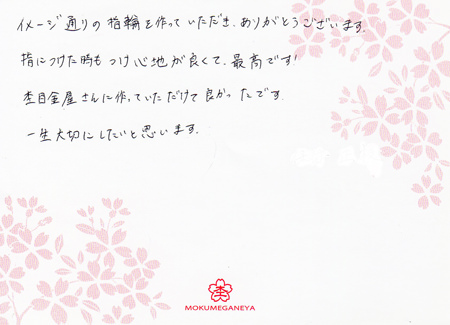 イメージ通りの指輪を作っていただき、ありがとうございます。
指につけた時もつけ心地が良くて、最高です!
杢目金屋さんに作っていただけて良かったです。
一生大切にしたいと思います。
杢
MOKUMEGANEYA